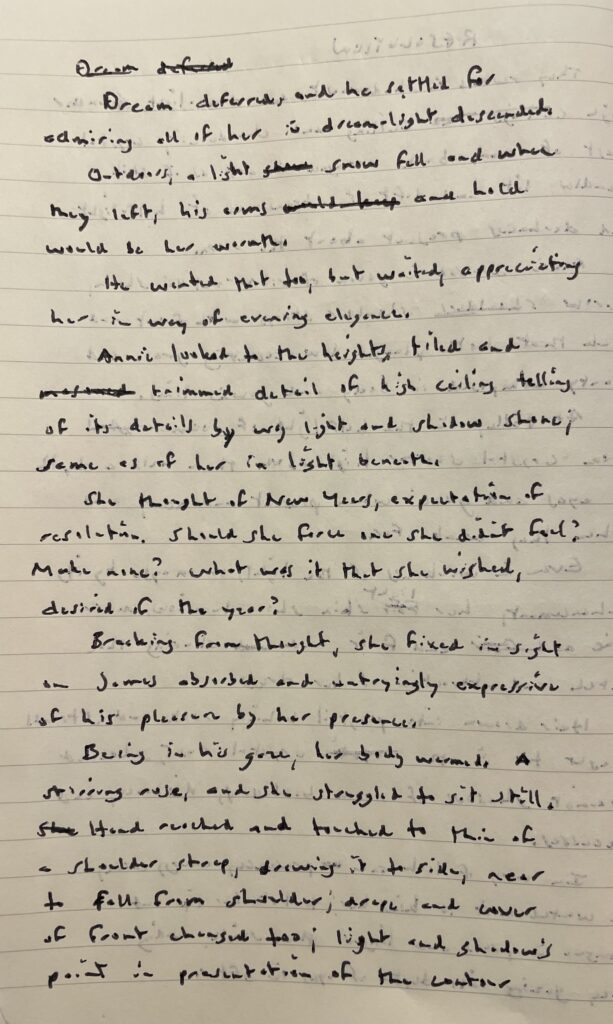 Dream deferred
Dream deferred, and he settled for
admiring all of her in dream-light descended.
Outdoors, a light snow fell and when
they left, his arms would keep and hold
would be her warmth.
He wanted that too, but waited, appreciating
her in way of evening elegance.
Annie looked to the heights, tiled and
trimmed detail of high ceiling telling
of its details by way light and shadow shone;
same as of her in light, beneath.
She thought of New Years, expectation of
resolution. Should she force one she didn't feel?
Make none? What was it that she wished,
desired of the year?
Breaking from thought, she fixed in sight
on James absorbed and untryingly expressive
of his pleasure by her presence.
Being in his gaze, her body warmed. A
stirring rose, and she struggled to sit still.
She Hand reached and touched to thin of
a shoulder strap, drawing it to side, near
to fall from shoulder; drape and cover
of front changed too; light and shadow's
point in presentation of the contour